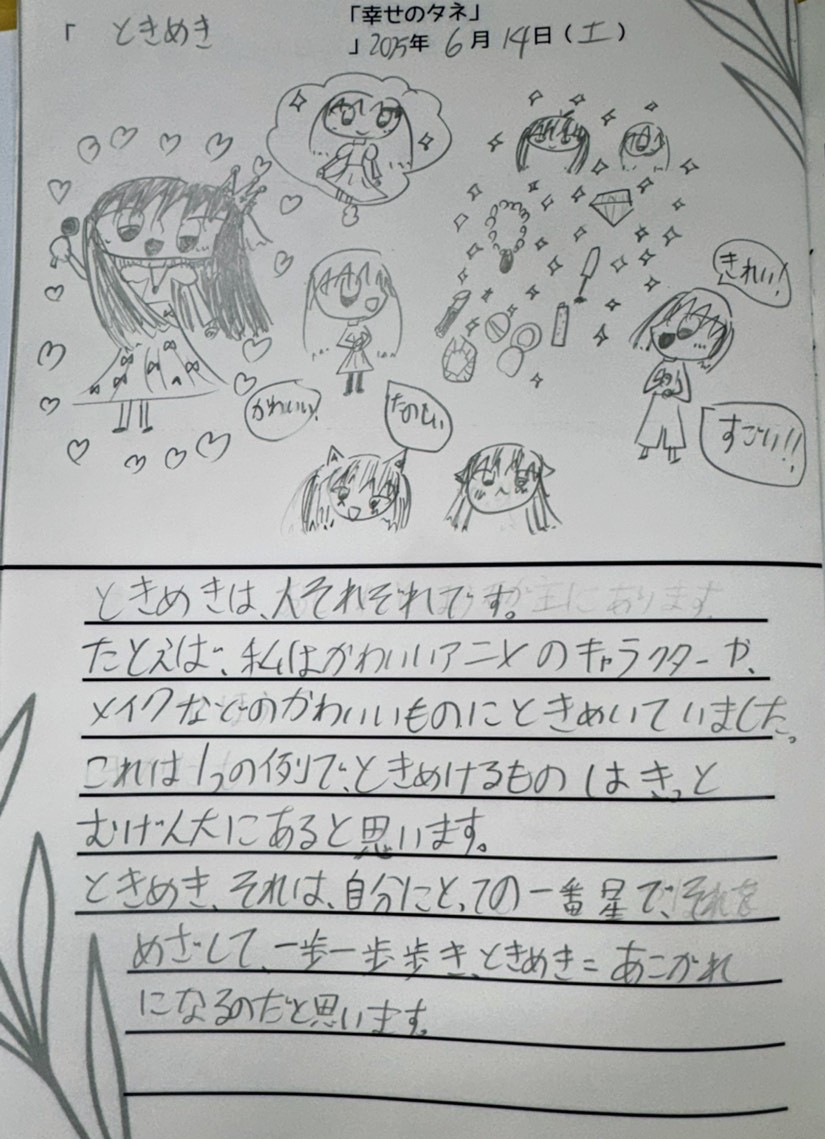 「幸せのタネ」
「 ときめき 」2025年 6月 14日(土)
きれい!
かわいい!
たのしい
すごい!!
ときめきは、人それぞれです。
たとえば、私はかわいいアニメのキャラクターや、
メイクなどのかわいいものにときめいていました。
これは1つの例で、ときめけるものはきっと
むげん大にあると思います。
ときめき、それは、自分にとっての一番星で、それを
めざして、一歩一歩歩き、ときめき=あこがれ
になるのだと思います。